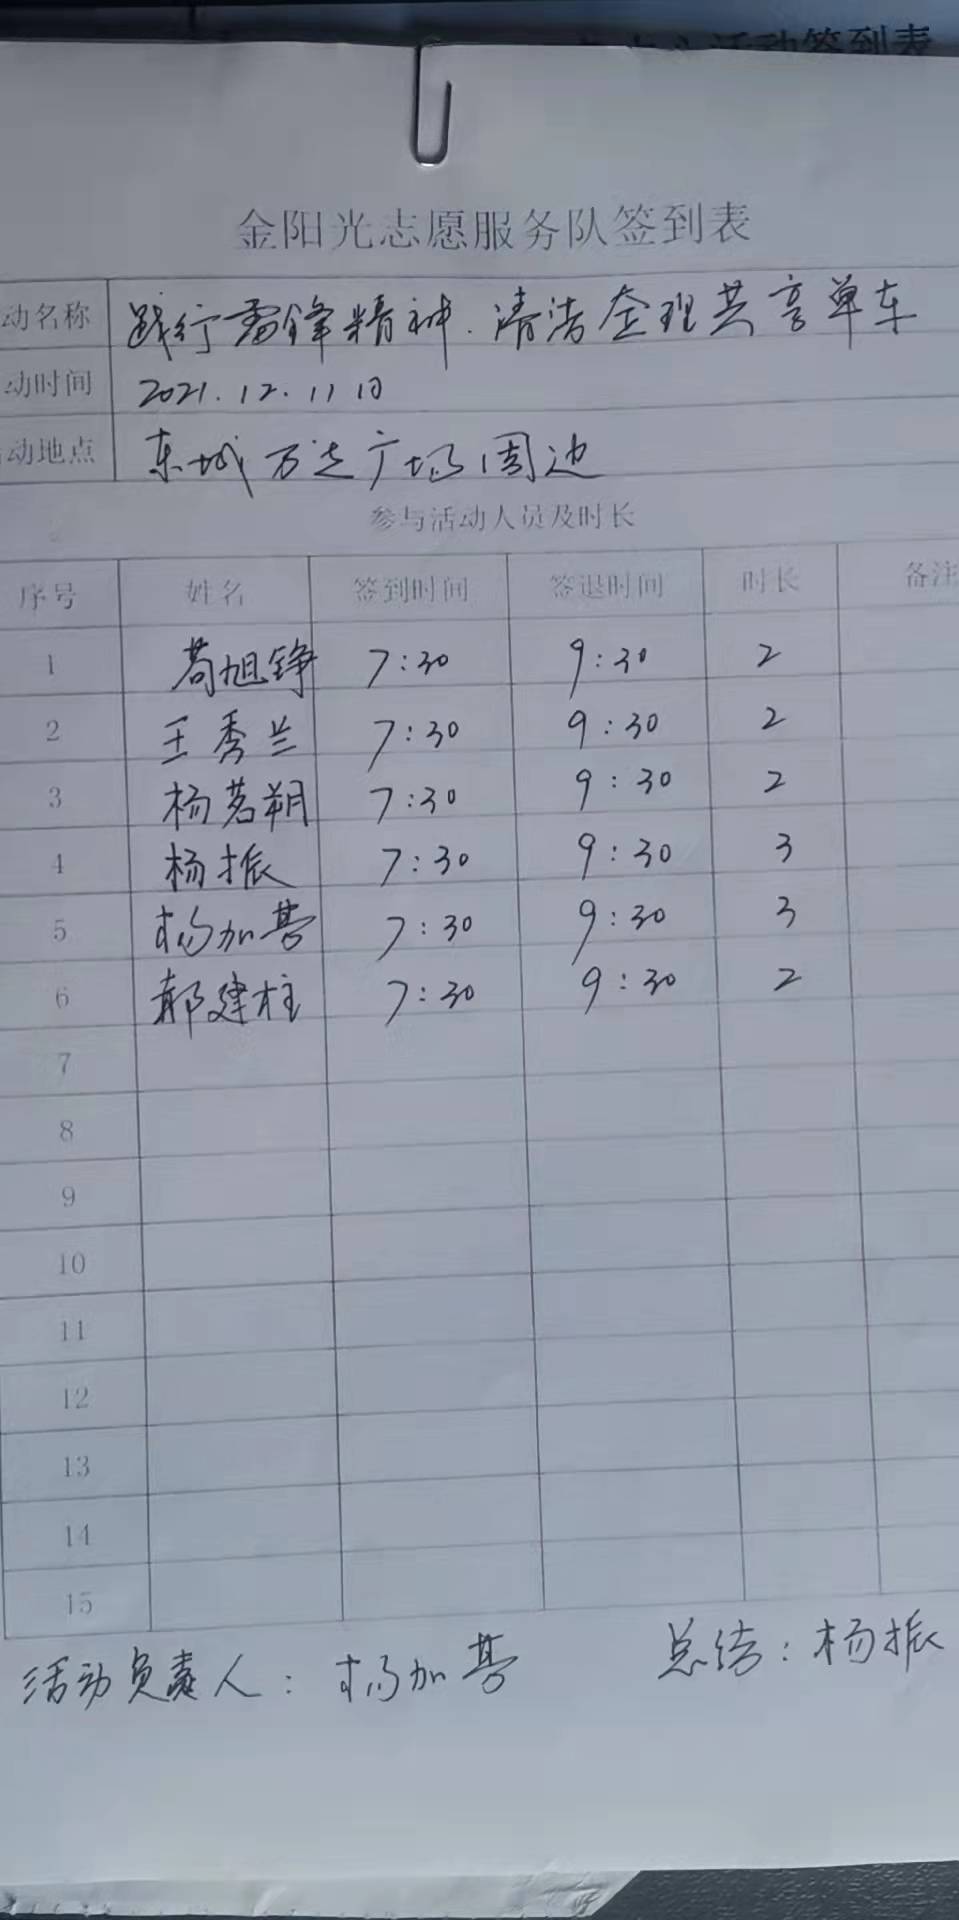 活动签到表
金阳光志愿服务队签到表
动名称 践行雷锋精神.清洁整理共享单车
动时间 2021.12.11日
动地点 东城万达广场周边
参与活动人员及时长
序号 姓名 签到时间 签退时间 时长 备注
1 苟旭铮 7:30 9:30 2
2 王秀兰 7:30 9:30 2
3 杨茗朔 7:30 9:30 2
4 杨振 7:30 9:30 3
5 杨加 7:30 9:30 3
6 郝建柱 7:30 9:30 2
7
8
9
10
11
12
13
14
15
活动负责人:杨加 总结:杨振